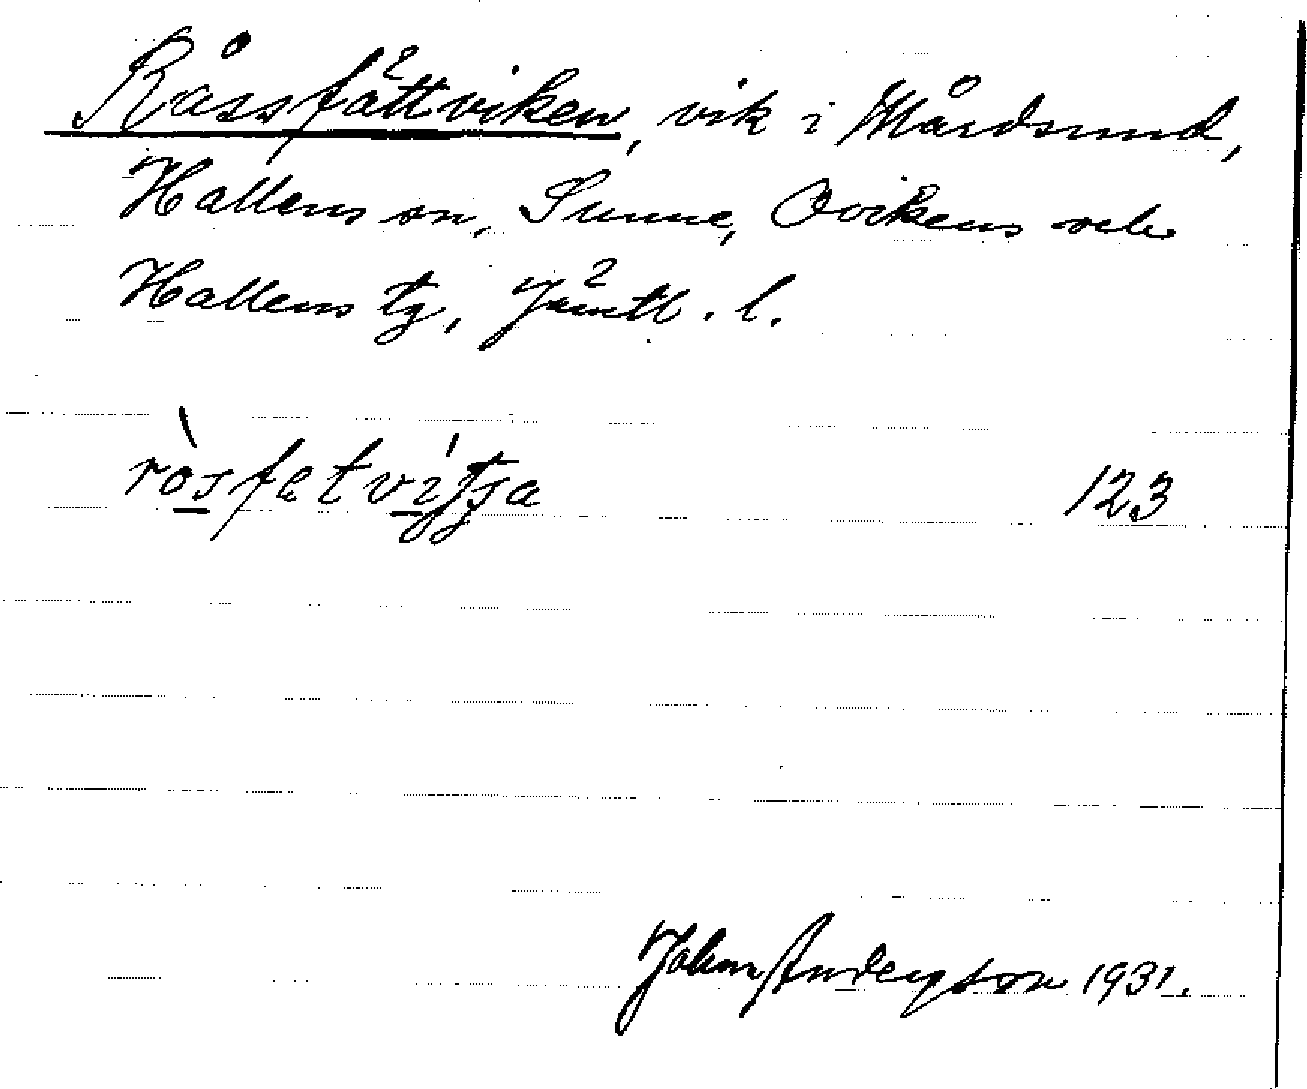 Råssfättviken, vik i Mårdsund,
Hallens sn, Sunne, Ovikens och
Hallens tg, Jämtl. l.
123
John Andersson 1931.